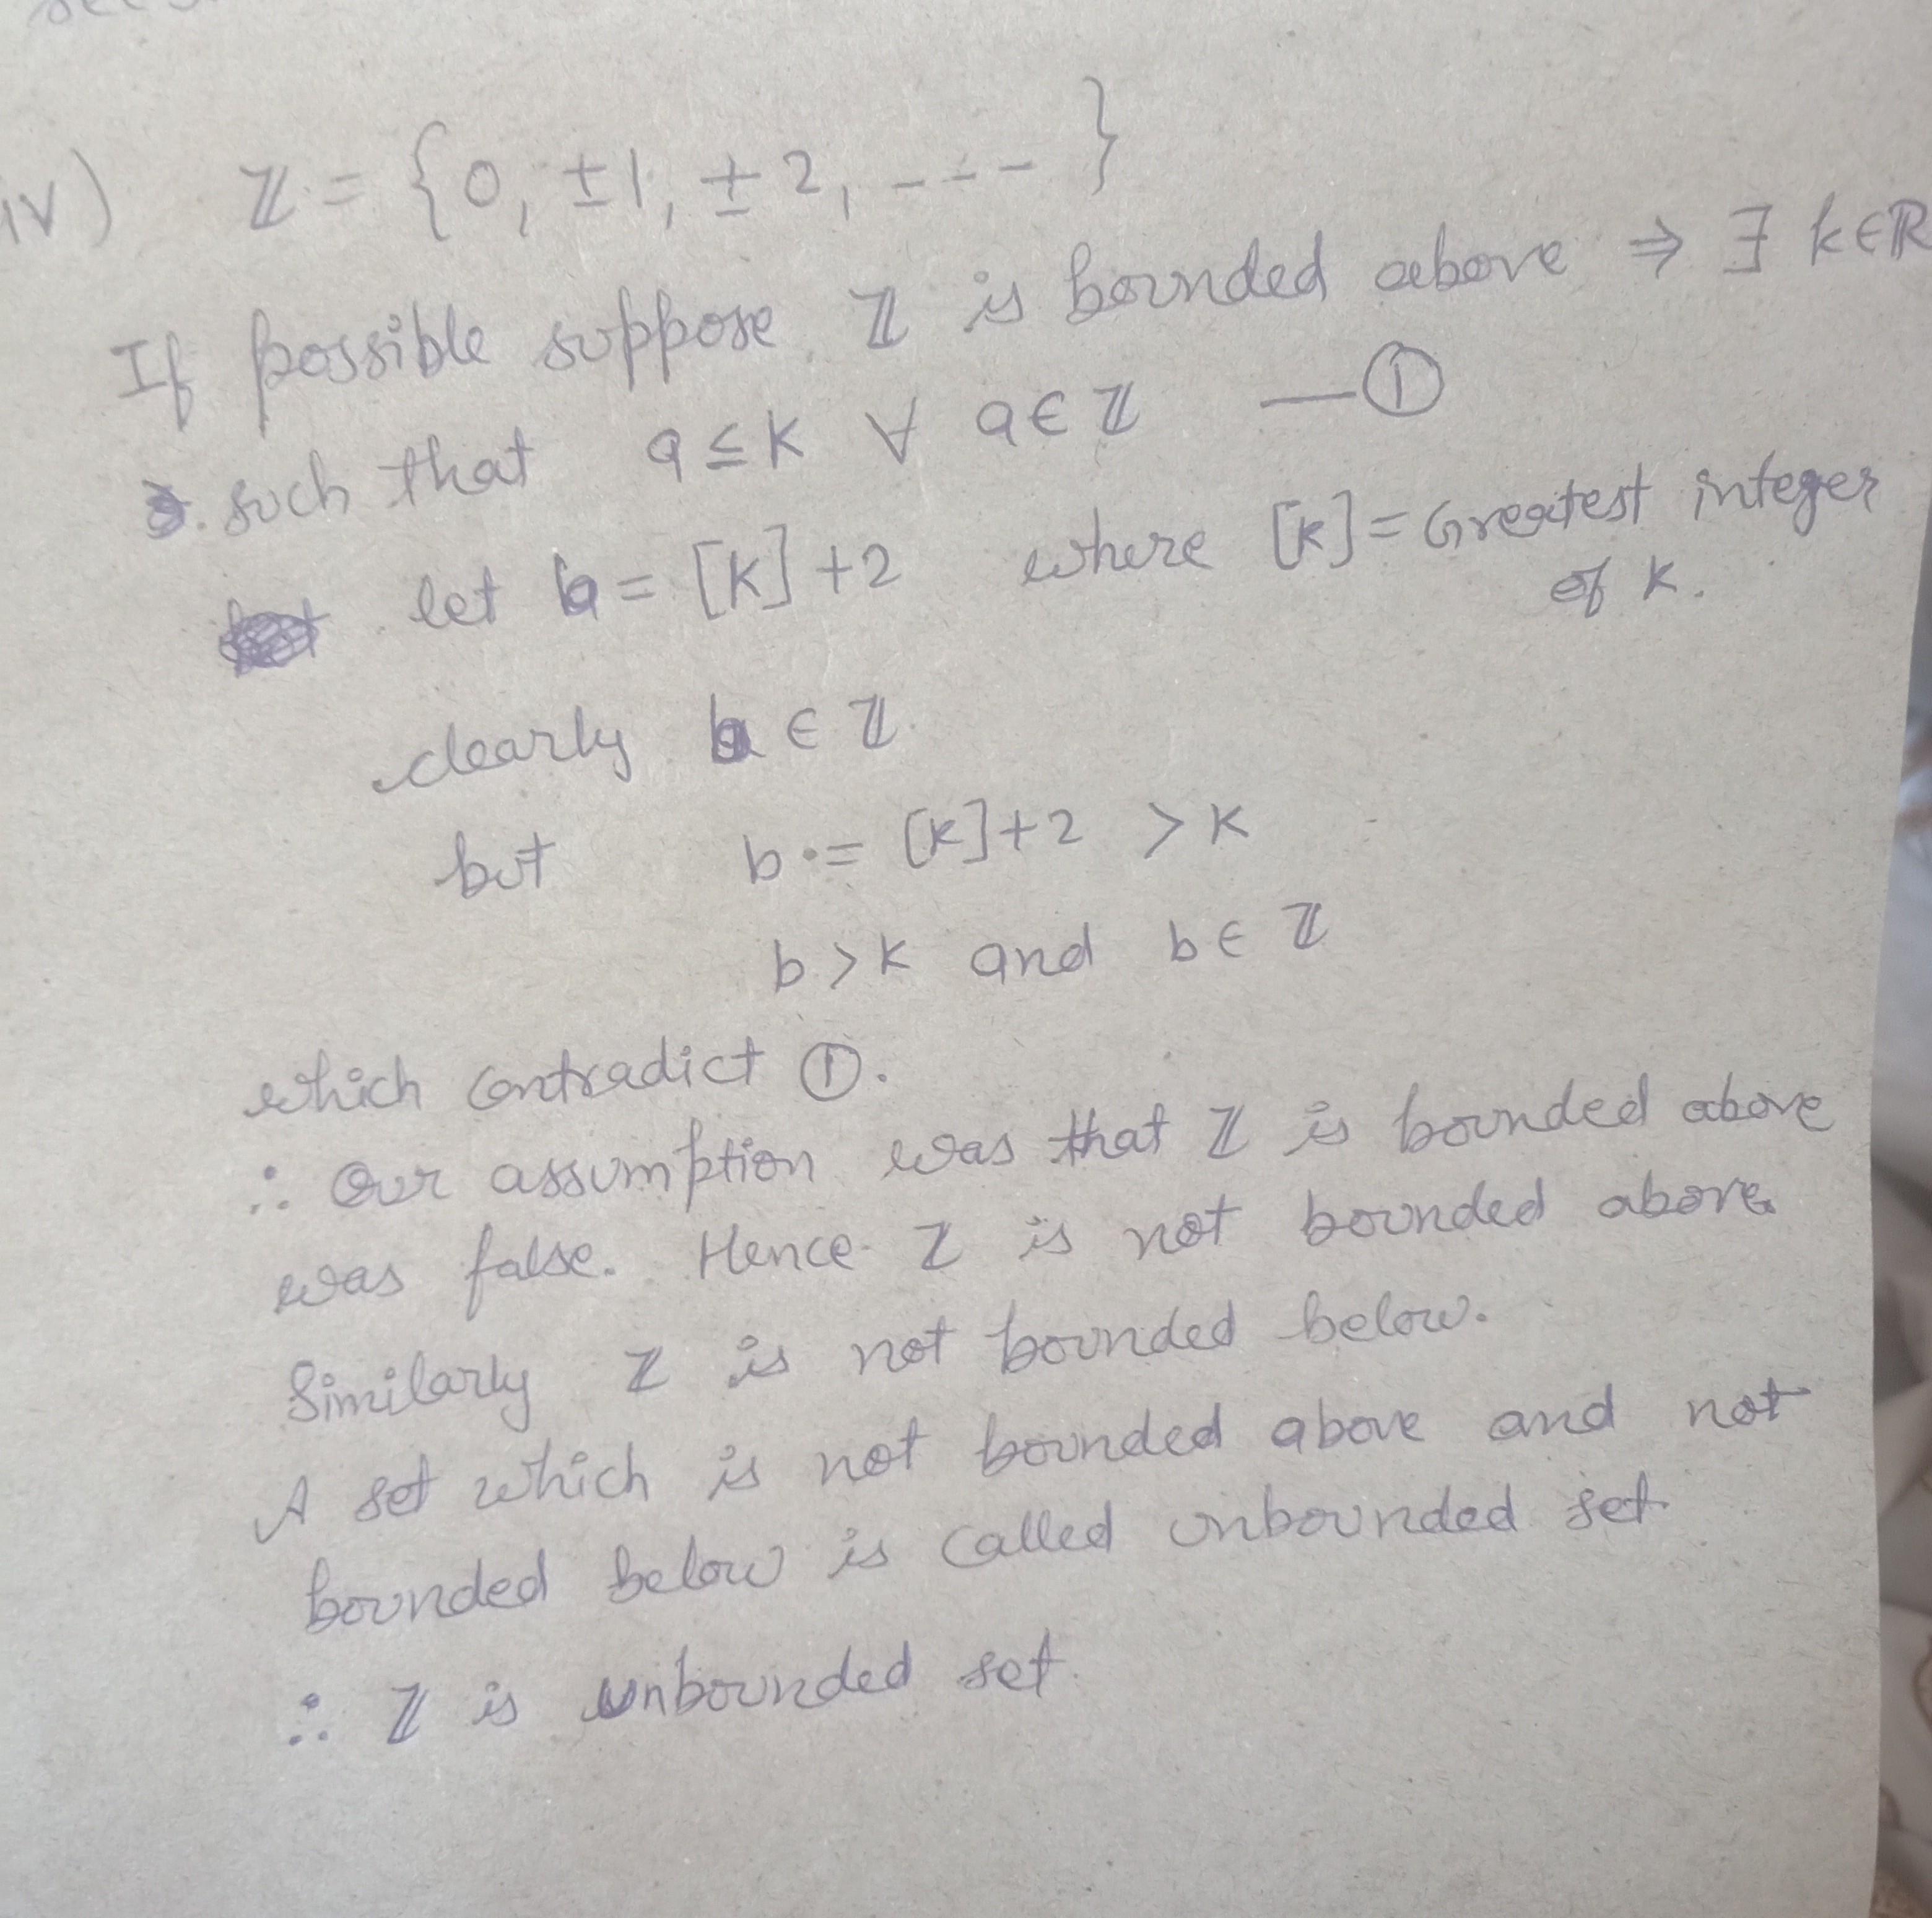 iv) ℤ = {0, ±1, ±2, ----}
If possible suppose ℤ is bounded above ⇒ ∃ k∈ℝ
such that a ≤ k ∀ a∈ℤ —①
let b = [k]+2 where [k] = Greatest integer
of k.
clearly b ∈ ℤ.
but b = [k]+2 > k
b > k and b ∈ ℤ
which contradict ①.
∴ Our assumption was that ℤ is bounded above
was false. Hence ℤ is not bounded above.
Similarly ℤ is not bounded below.
A set which is not bounded above and not
bounded below is called unbounded set.
∴ ℤ is unbounded set.